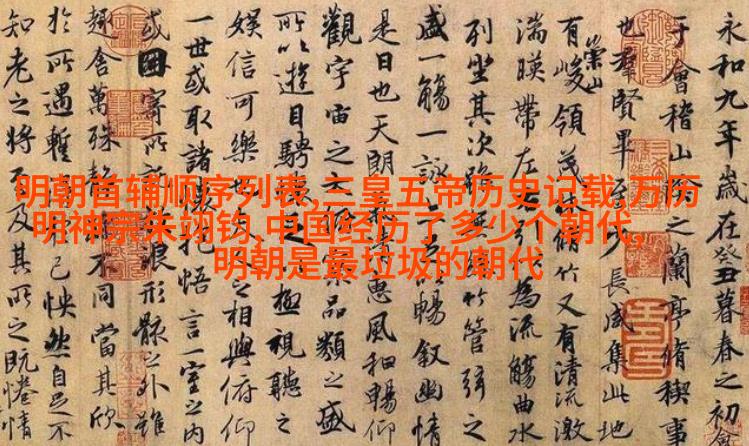 明朝首辅顺序列表,三皇五帝历史记载,万历
明神宗朱翊钧,中国经历了多少个朝代,
明朝是最垃圾的朝代
永和九年歲在癸丑暮春之初會
于會稽山之蘭亭脩稧事
也羣賢畢至少長咸集此地
有崇山峻領茂脩竹又有清流激
湍暎帶左引為流觴曲水
列坐其次竹管弦之
盛一觴一詠以暢叙幽情
是日也天朗惠風和暢仰
觀宇宙之大品類之盛
所以遊目騁極視聽之
娛信可樂也之相與俯仰
一世或取諸悟言一室之內
或因寄所浪形骸之外雖
趣舍萬殊不同當其欣
於所遇暫己怏然自足不
知老之將及其所之既惓情